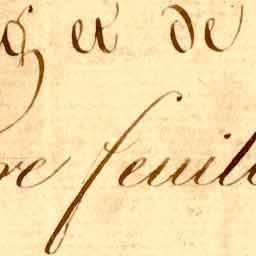 et de
re feuill